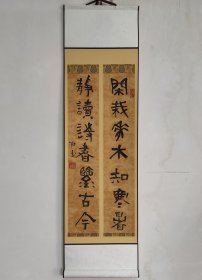 閑栽華木知寒暑
靜讀詩書鑒古今